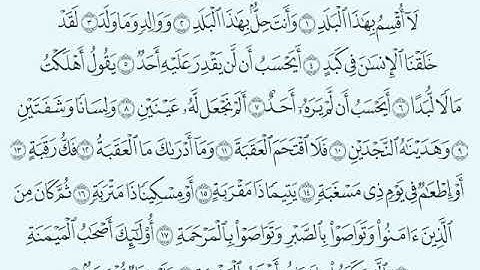 لَآ أُقْسِمُ بِهَٰذَا ٱلْبَلَدِ ١ وَأَنتَ حِلٌّۢ بِهَٰذَا ٱلْبَلَدِ ٢ وَوَالِدٍ وَمَا وَلَدَ ٣ لَقَدْ
خَلَقْنَا ٱلْإِنسَٰنَ فِى كَبَدٍ ٤ أَيَحْسَبُ أَن لَّن يَقْدِرَ عَلَيْهِ أَحَدٌ ٥ يَقُولُ أَهْلَكْتُ
مَالًا لُّبَدًا ٦ أَيَحْسَبُ أَن لَّمْ يَرَهُۥٓ أَحَدٌ ٧ أَلَمْ نَجْعَل لَّهُۥ عَيْنَيْنِ ٨ وَلِسَانًا وَشَفَتَيْنِ
٩ وَهَدَيْنَٰهُ ٱلنَّجْدَيْنِ ١٠ فَلَا ٱقْتَحَمَ ٱلْعَقَبَةَ ١١ وَمَآ أَدْرَىٰكَ مَا ٱلْعَقَبَةُ ١٢ فَكُّ رَقَبَةٍ ١٣
أَوْ إِطْعَٰمٌ فِى يَوْمٍ ذِى مَسْغَبَةٍ ١٤ يَتِيمًا ذَا مَقْرَبَةٍ ١٥ أَوْ مِسْكِينًا ذَا مَتْرَبَةٍ ١٦ ثُمَّ كَانَ مِنَ
ٱلَّذِينَ ءَامَنُوا۟ وَتَوَاصَوْا۟ بِٱلصَّبْرِ وَتَوَاصَوْا۟ بِٱلْمَرْحَمَةِ ١٧ أُو۟لَٰٓئِكَ أَصْحَٰبُ ٱلْمَيْمَنَةِ